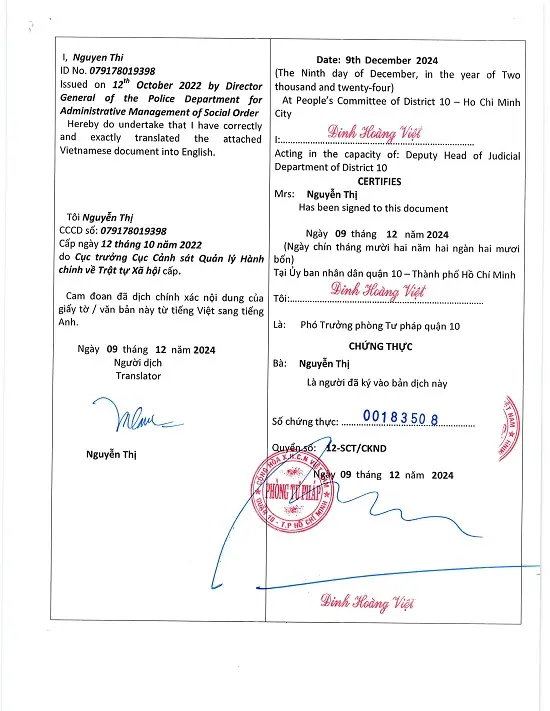 I, Nguyen Thi
ID No. 079178019398
Issued on 12th October 2022 by Director
General of the Police Department for
Administrative Management of Social Order
Hereby do undertake that I have correctly
and exactly translated the attached
Vietnamese document into English.
Tôi Nguyễn Thị
CCCD số: 079178019398
Cấp ngày 12 tháng 10 năm 2022
do Cục trưởng Cục Cảnh sát Quản lý Hành
chính về Trật tự Xã hội cấp.
Cam đoan đã dịch chính xác nội dung của
giấy tờ / văn bản này từ tiếng Việt sang tiếng
Anh.
Ngày 09 tháng 12 năm 2024
Người dịch
Translator
Nguyễn Thị
Date: 9th December 2024
(The Ninth day of December, in the year of Two
thousand and twenty-four)
At People's Committee of District 10 – Ho Chi Minh
City
Đinh Hoàng Việt
I:
Acting in the capacity of: Deputy Head of Judicial
Department of District 10
CERTIFIES
Mrs: Nguyễn Thị
Has been signed to this document
Ngày 09 tháng 12 năm 2024
(Ngày chín tháng mười hai năm hai ngàn hai mươi
bốn)
Tại Ủy ban nhân dân quận 10 – Thành phố Hồ Chí Minh
Đinh Hoàng Việt
Tôi:
Là: Phó Trưởng phòng Tư pháp quận 10
CHỨNG THỰC
Bà: Nguyễn Thị
Là người đã ký vào bản dịch này
Số chứng thực: 0018350 8
Quyển số: 12-SCT/CKND
Ngày 09 tháng 12 năm 2024
CỘNG HÒA X.H.C.N VIỆT NAM
PHÒNG TƯ PHÁP
QUẬN 10 - T.P HỒ CHÍ MINH
Đinh Hoàng Việt